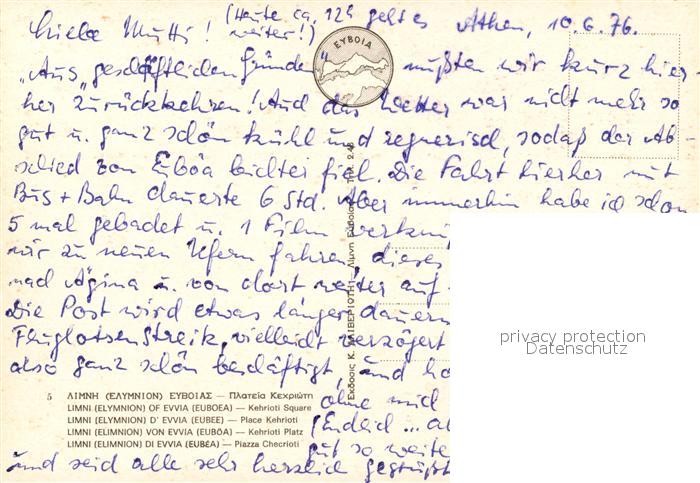 (Heute ca. 12h geht es weiter!)
Athen, 10.6.76.
Liebe Mutti!
ΕΥΒΟΙΑ
„Aus „geschäftlichen Gründen" mußten wir kurz hier-
her zurückkehren! Auch das Wetter war nicht mehr so
gut u. ganz schön kühl und regnerisch, sodaß der Ab-
schied von Euböa leichter fiel. Die Fahrt hierher mit
Bus + Bahn dauerte 6 Std. Aber immerhin habe ich schon
5 mal gebadet u. 1 Film
wir zu neuen Ufern fahren, dieses
nach Ägina u. von dort weiter auf
Die Post wird etwas länger dauern
Fluglotsenstreik, vielleicht verzögert
also ganz schön beschäftigt, und
ohne mich
(Endlich ...
gut so weite
und seid alle sehr herzlich gegrüßt
5 ΛΙΜΝΗ (ΕΛΥΜΝΙΟΝ) ΕΥΒΟΙΑΣ — Πλατεία Κεχριώτη
LIMNI (ELYMNION) OF EVVIA (EUBOEA) — Kehrioti Square
LIMNI (ELIMNION) D' EVVIA (EUBEE) — Place Kehrioti
LIMNI (ELIMNION) VON EVVIA (EUBÖA) — Kehrioti Platz
LIMNI (ELIMNION) DI EVVIA (EUBÉA) — Piazza Checrioti
privacy protection
Datenschutz